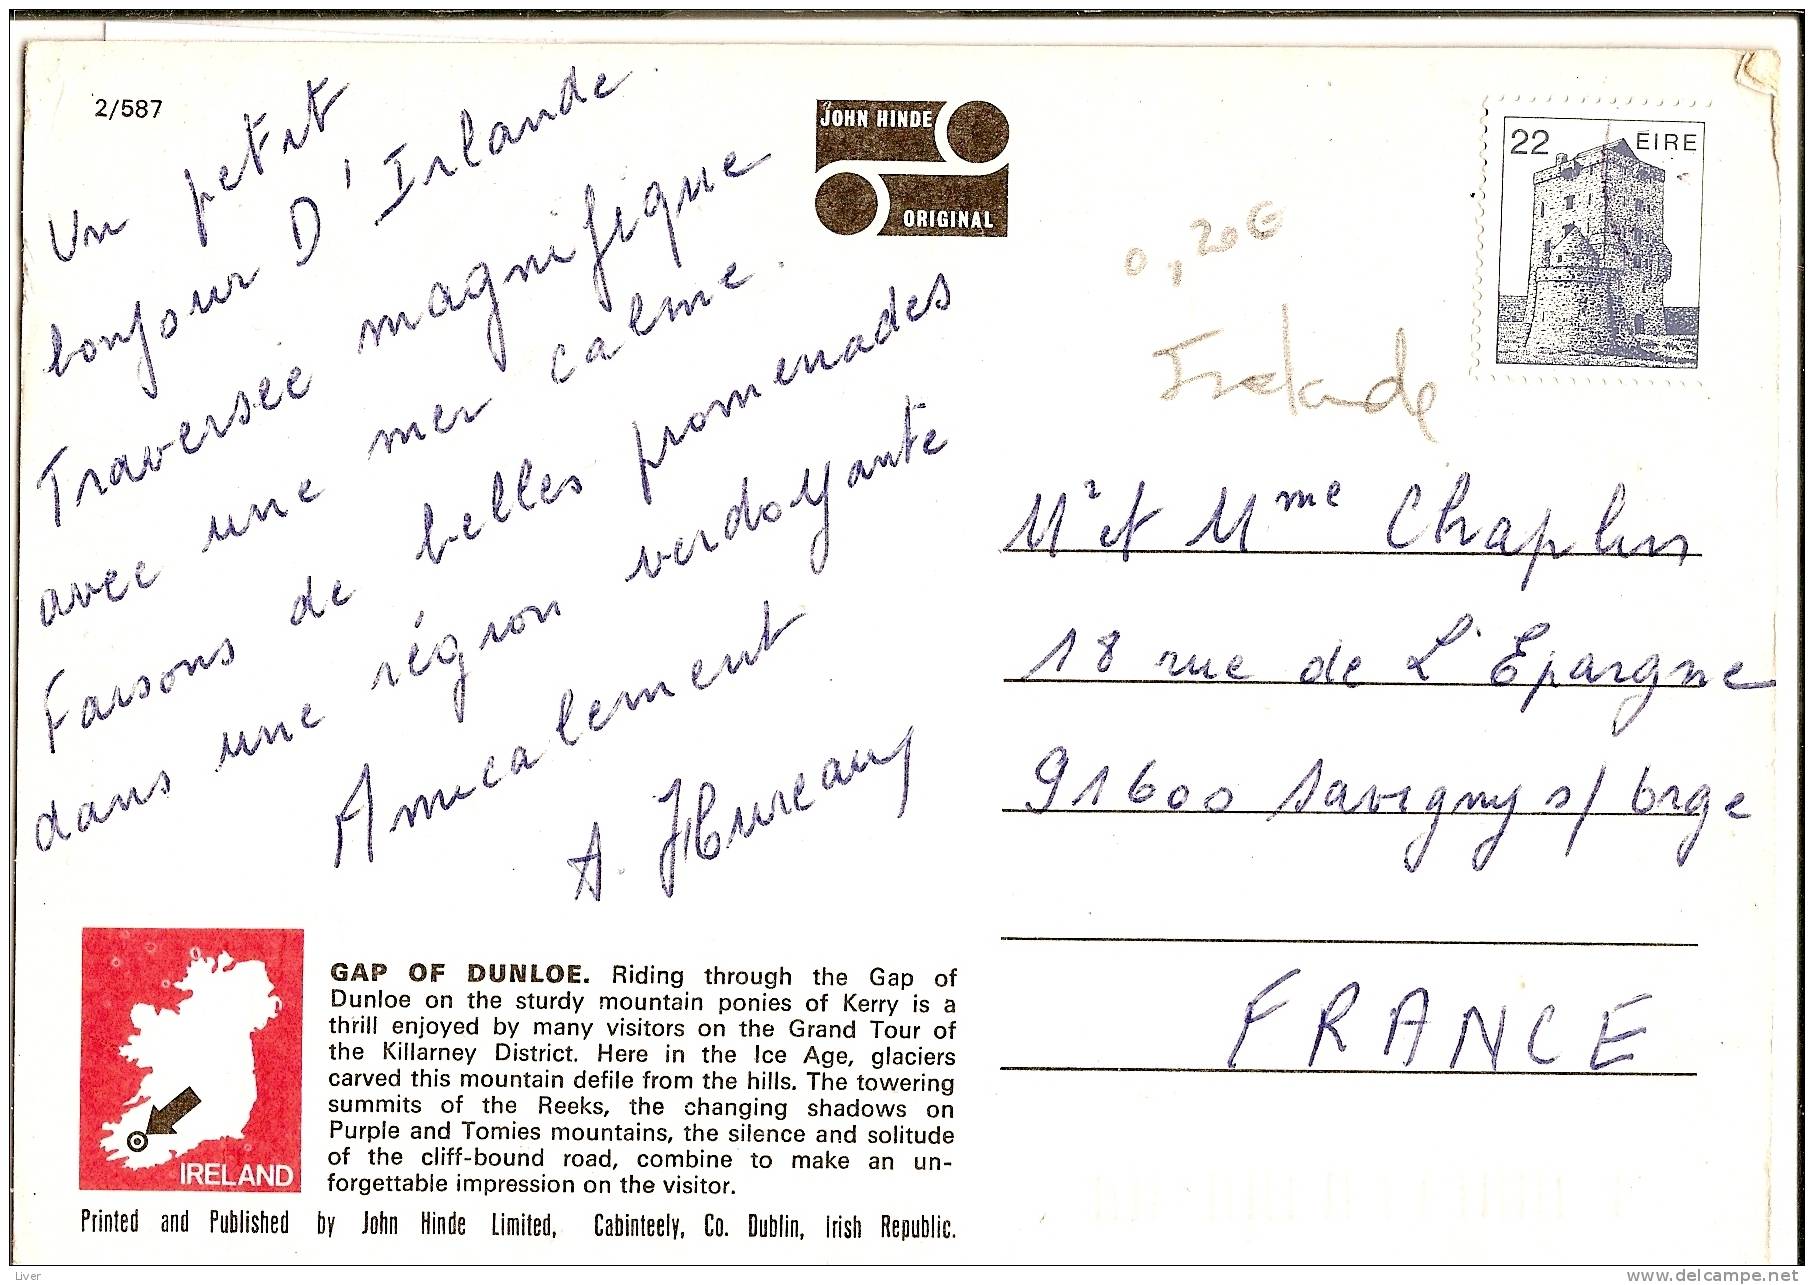 2/587
Un petit
bonjour D'Irlande
Traversée magnifique
avec une mer calme.
Faisons de belles promenades
dans une région verdoyante
Amicalement
A.
JOHN HINDE
ORIGINAL
22 EIRE
0,20€
Irelande
Mr et Mme Chaplin
18 rue de L'Epargne
91600 Savigny s/ Orge
FRANCE
IRELAND
GAP OF DUNLOE. Riding through the Gap of
Dunloe on the sturdy mountain ponies of Kerry is a
thrill enjoyed by many visitors on the Grand Tour of
the Killarney District. Here in the Ice Age, glaciers
carved this mountain defile from the hills. The towering
summits of the Reeks, the changing shadows on
Purple and Tomies mountains, the silence and solitude
of the cliff-bound road, combine to make an un-
forgettable impression on the visitor.
Printed and Published by John Hinde Limited, Cabinteely, Co. Dublin, Irish Republic.
Liver
www.delcampe.net